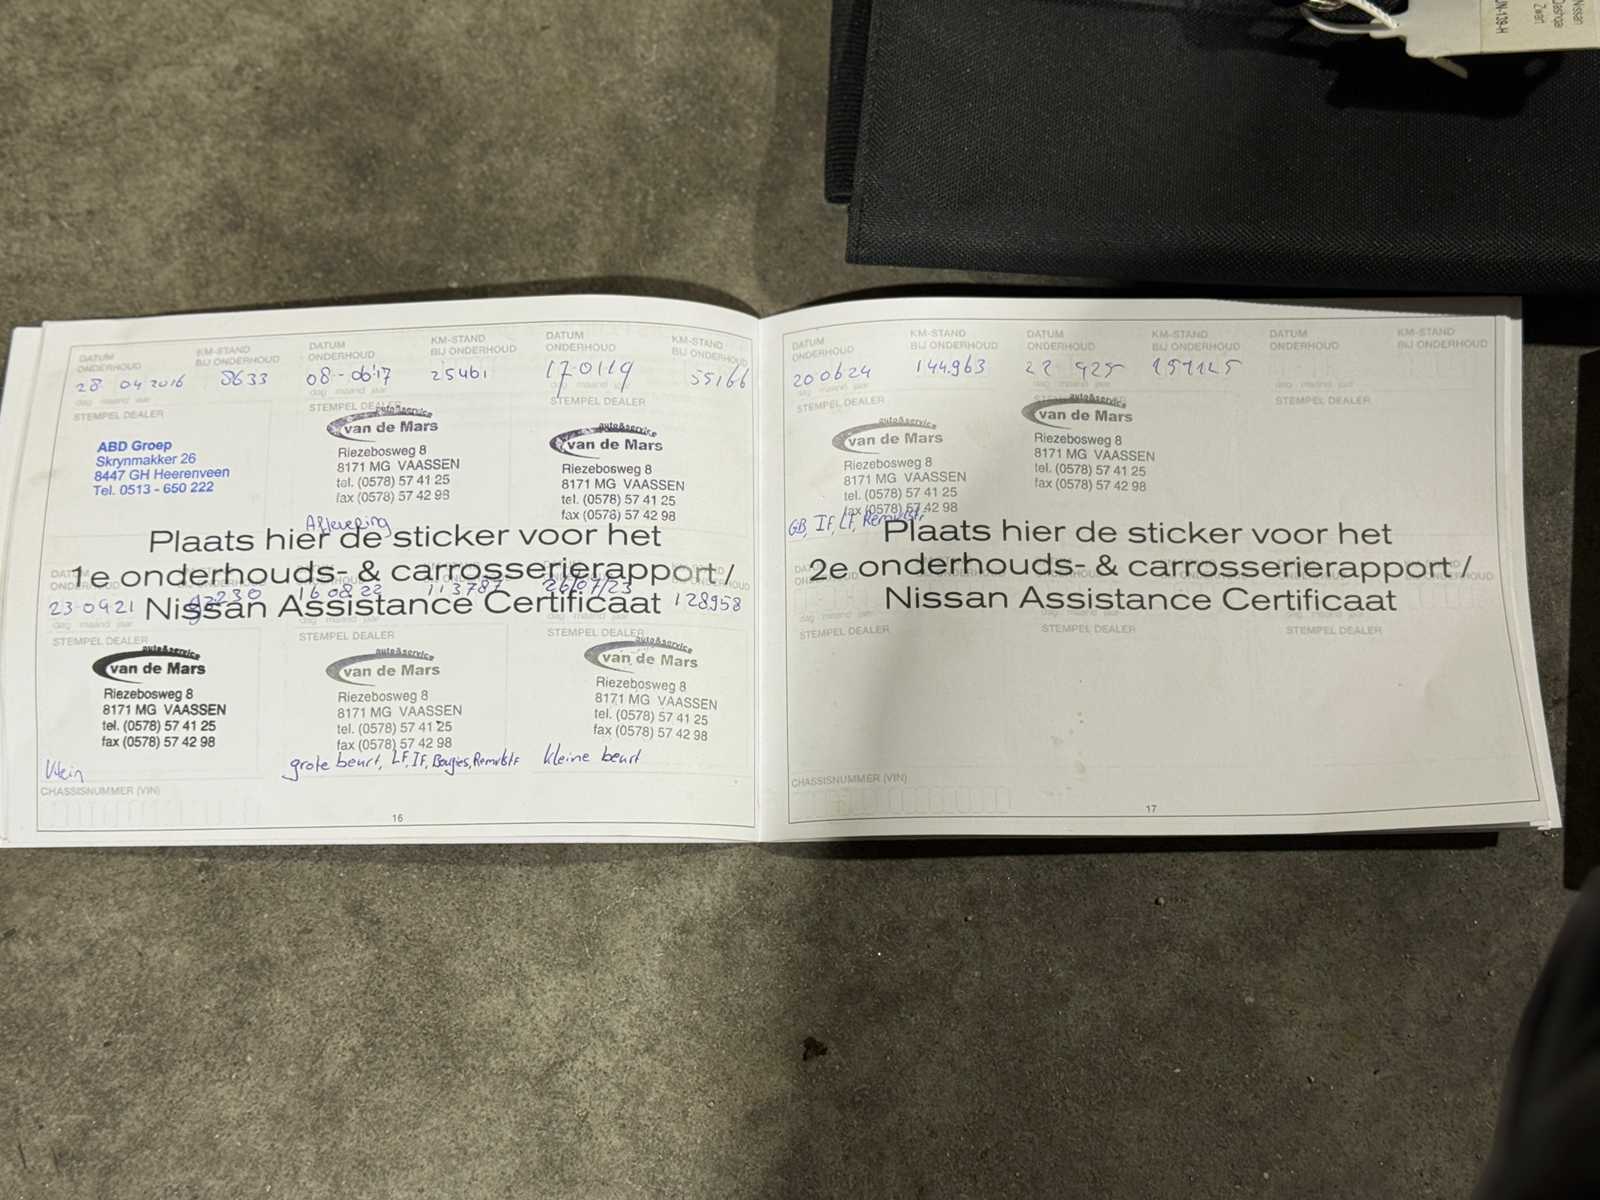 Nissan
Qashqai
Zwart
JN-139-H
DATUM ONDERHOUD
KM-STAND BIJ ONDERHOUD
DATUM ONDERHOUD
KM-STAND BIJ ONDERHOUD
DATUM ONDERHOUD
KM-STAND BIJ ONDERHOUD
28 04 2016
8633
08-06'17
25461
17-01-19
55166
dag maand jaar
dag maand jaar
dag maand jaar
STEMPEL DEALER
STEMPEL DEALER
STEMPEL DEALER
ABD Groep
Skrynmakker 26
8447 GH Heerenveen
Tel. 0513 - 650 222
auto&service
van de Mars
Riezebosweg 8
8171 MG VAASSEN
tel. (0578) 57 41 25
fax (0578) 57 42 98
Aflevering
auto&service
van de Mars
Riezebosweg 8
8171 MG VAASSEN
tel. (0578) 57 41 25
fax (0578) 57 42 98
Plaats hier de sticker voor het
1e onderhouds- & carrosserierapport /
Nissan Assistance Certificaat
23-09 21
92230
16 08 22
113787
26/07/23
128958
dag maand jaar
STEMPEL DEALER
STEMPEL DEALER
STEMPEL DEALER
auto&service
van de Mars
Riezebosweg 8
8171 MG VAASSEN
tel. (0578) 57 41 25
fax (0578) 57 42 98
klein
auto&service
van de Mars
Riezebosweg 8
8171 MG VAASSEN
tel. (0578) 57 41 25
fax (0578) 57 42 98
grote beurt, LF, IF, Bougies, Remvlstf
auto&service
van de Mars
Riezebosweg 8
8171 MG VAASSEN
tel. (0578) 57 41 25
fax (0578) 57 42 98
kleine beurt
CHASSISNUMMER (VIN)
16
DATUM ONDERHOUD
KM-STAND BIJ ONDERHOUD
DATUM ONDERHOUD
KM-STAND BIJ ONDERHOUD
DATUM ONDERHOUD
KM-STAND BIJ ONDERHOUD
20 06 24
144.963
22 925
157125
dag maand jaar
dag maand jaar
STEMPEL DEALER
STEMPEL DEALER
auto&service
van de Mars
Riezebosweg 8
8171 MG VAASSEN
tel. (0578) 57 41 25
fax (0578) 57 42 98
GB, IF, LF, Remvlstf
auto&service
van de Mars
Riezebosweg 8
8171 MG VAASSEN
tel. (0578) 57 41 25
fax (0578) 57 42 98
Plaats hier de sticker voor het
2e onderhouds- & carrosserierapport /
Nissan Assistance Certificaat
STEMPEL DEALER
STEMPEL DEALER
STEMPEL DEALER
CHASSISNUMMER (VIN)
17